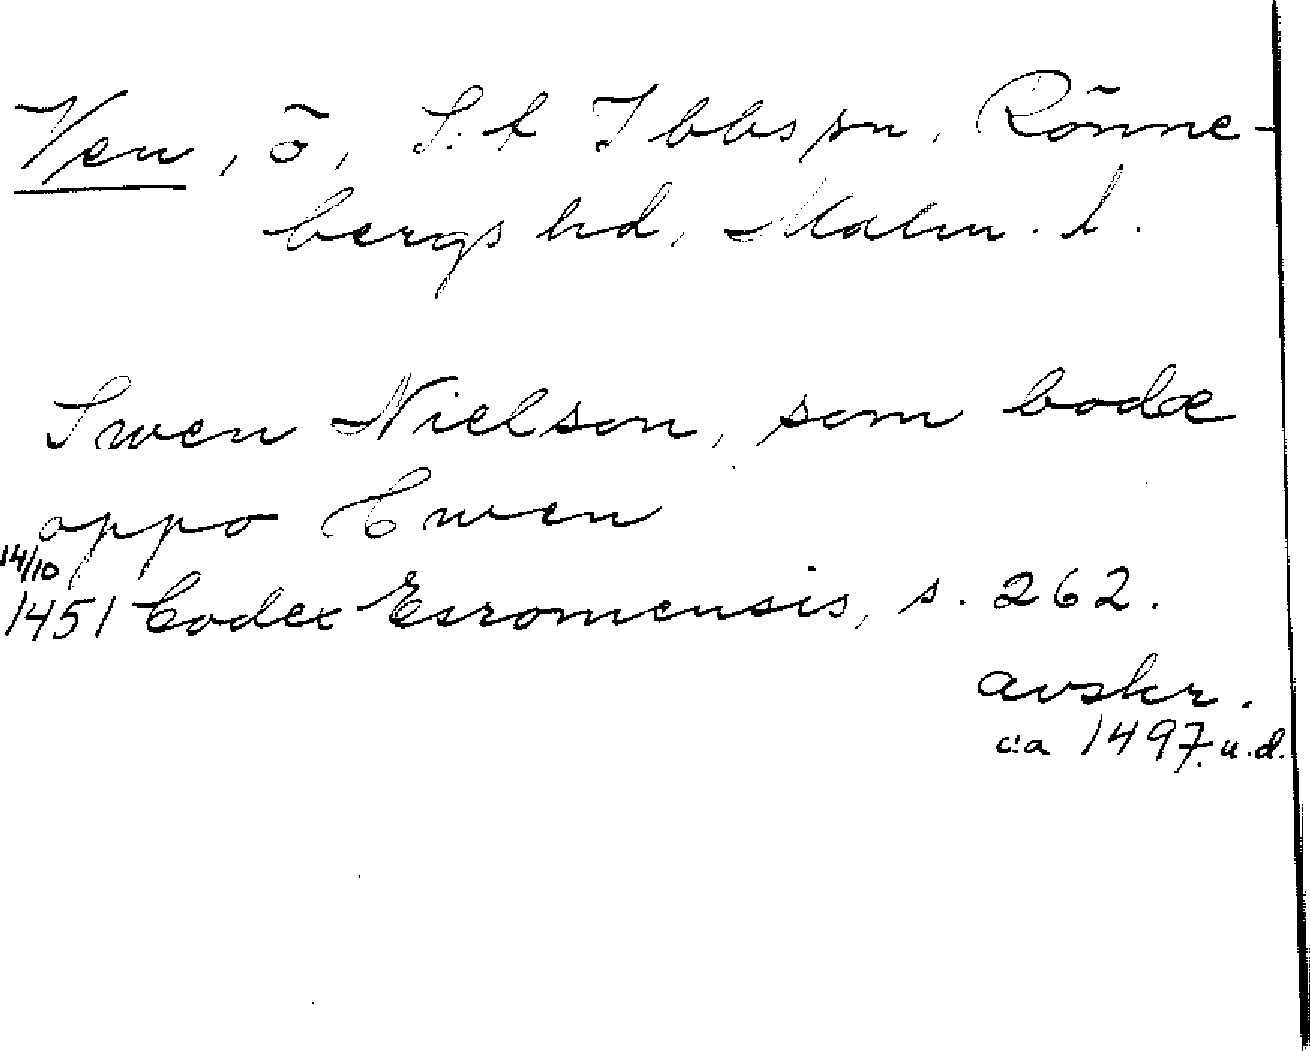 Ven, ö, S:t Ibbs sn, Rönne-
bergs hd, Malm. l.
Swen Nielson, som bodæ
oppo Hwen
14/10
1451 Codex Esromensis, s. 262.
avskr.
ca 1497 u.d.